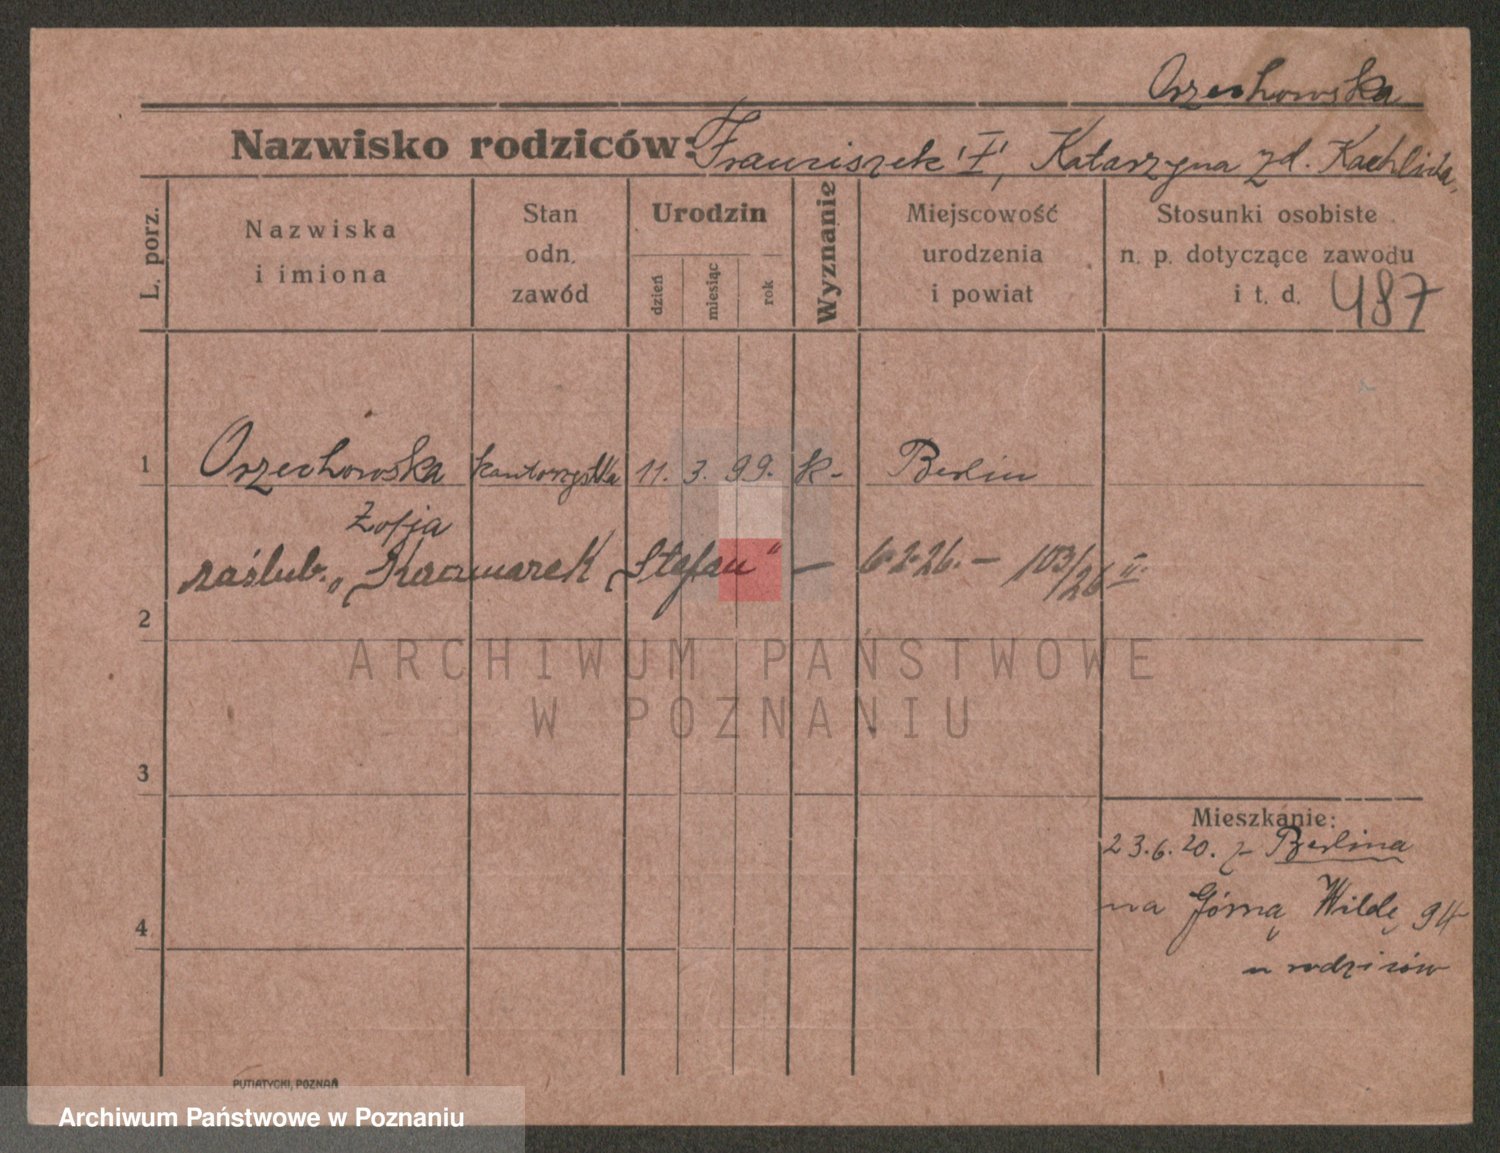 Orzechowska
Nazwisko rodziców: Franciszek "I", Katarzyna zd. Kachlicka
L. porz.
Nazwiska
i imiona
Stan
odn.
zawód
Urodzin
dzień
miesiąc
rok
Wyznanie
Miejscowość
urodzenia
i powiat
Stosunki osobiste
n. p. dotyczące zawodu
i t. d. 487
1 Orzechowska kantorzystka 11. 3. 99. k- Berlin
Zofja
zaślub. „Kaczmarek Stefan" — 6.2.26. — 103/26 II.
2
ARCHIWUM PAŃSTWOWE
W POZNANIU
3
Mieszkanie:
23.6.20. z- Berlina
4 na Górną Wildę 94
u rodziców
PUTIATYCKI, POZNAŃ
Archiwum Państwowe w Poznaniu